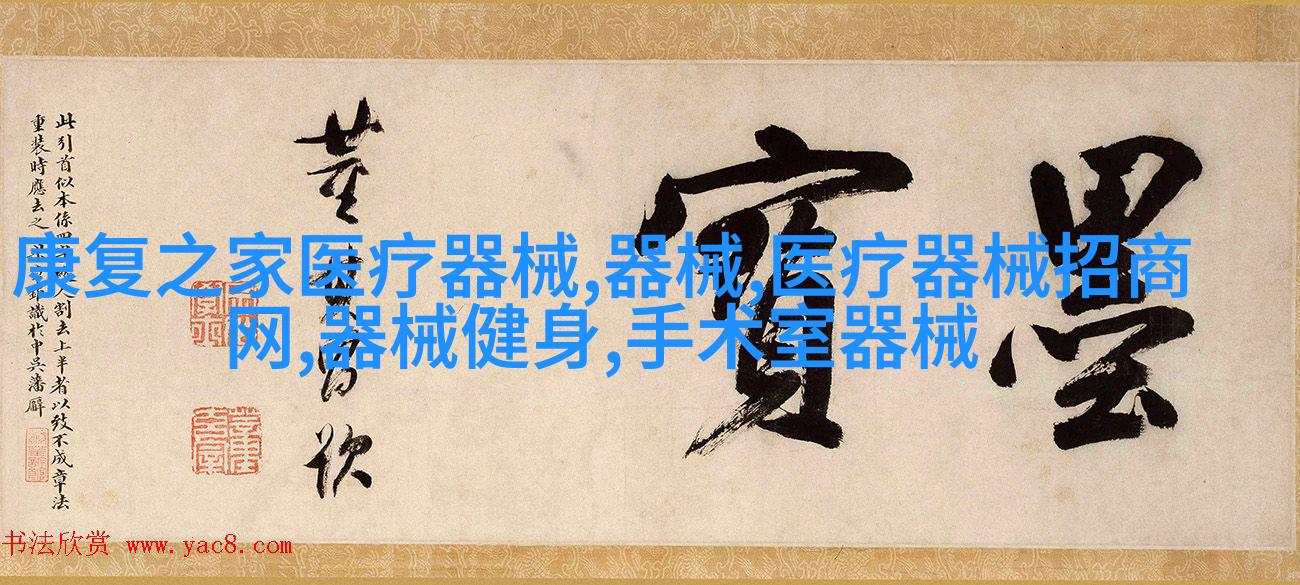 康复之家医疗器械,器械,医疗器械招商
网,器械健身,手术室器械
墨寶
董其昌
此引首似本係四割去上半者以致不成章法
重裝時應去之識於中吳潘廨
书法欣赏 www.yac8.com